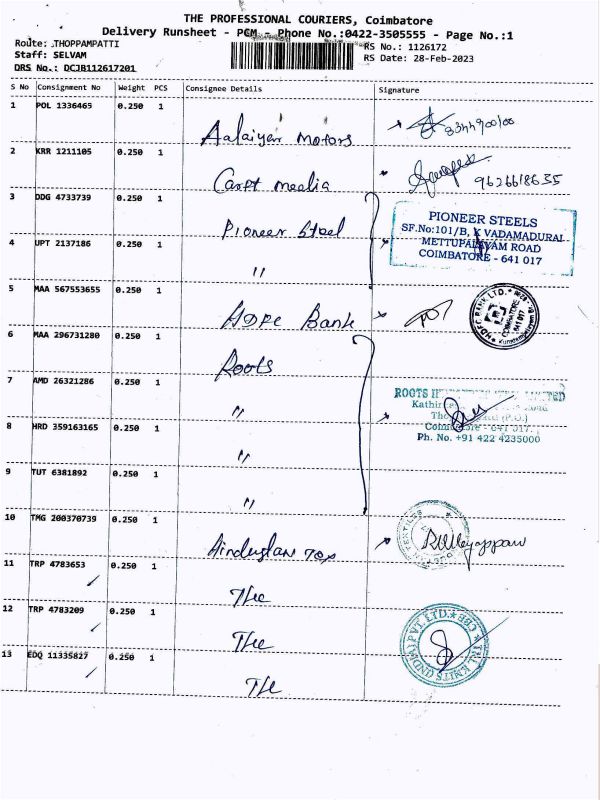 THE PROFESSIONAL COURIERS, Coimbatore
Delivery Runsheet - PCM - Phone No.:0422-3505555 - Page No.:1
Route: THOPPAMPATTI
RS No.: 1126172
Staff: SELVAM
RS Date: 28-Feb-2023
DRS No.: DCJB112617201
S No Consignment No Weight PCS Consignee Details Signature
1 POL 1336465 0.250 1
Motors
2 KRR 1211105 0.250 1
9626618635
3 DDG 4733739 0.250 1 Pioneer Steel
PIONEER STEELS
SF.No:101/B, K VADAMADURAI
METTUPALAYAM ROAD
COIMBATORE - 641 017
4 UPT 2137186 0.250 1 "
5 MAA 567553655 0.250 1
HDFC Bank
HDFC BANK LTD.
COIMBATORE
641 017
6 MAA 296731280 0.250 1
Roots
7 AMD 26321286 0.250 1 "
ROOTS
Ph. No. +91 422 4235000
8 HRD 359163165 0.250 1 "
9 TUT 6381892 0.250 1 "
10 TMG 200370739 0.250 1
11 TRP 4783653 0.250 1
12 TRP 4783209 0.250 1
KNITS (INDIA) PVT. LTD. ★ CBE ★
13 EDQ 11335827 0.250 1